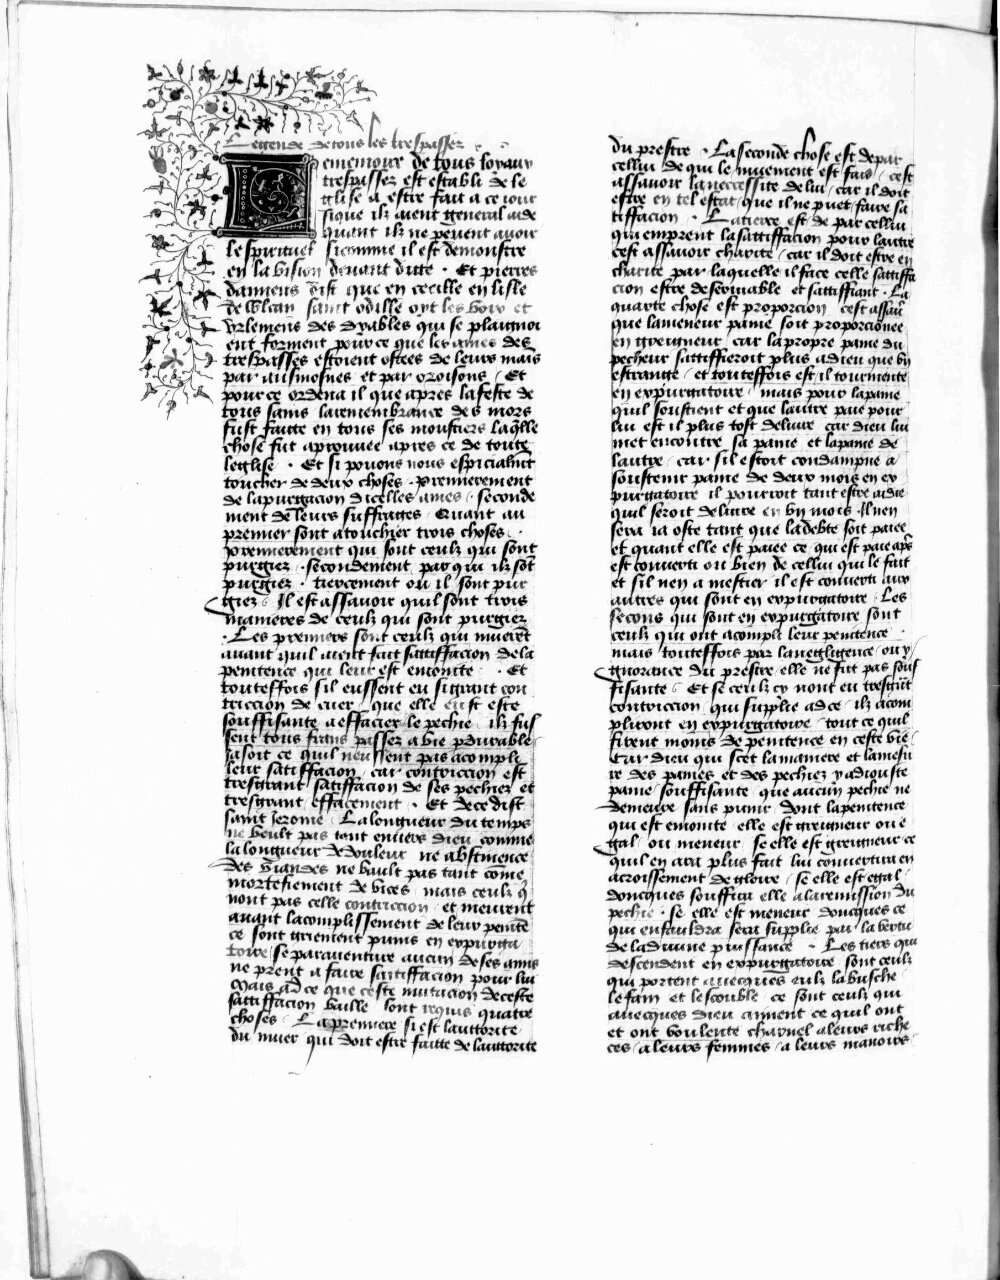 Legende de tous les trespasses
Lememoire de tous loyaux
trespassez est establi de le
glise a estre fait a ce iour
si que ilz aient general aide
quant ilz ne peuent auoir
le spirituel si comme il est demonstre
en la vision deuant dite . Et pierres
damiens dist que en cecille en lisle
de wlcan saint odille oyt les voix et
vrlemens des dyables qui se plaignoi
ent forment pour ce que les ames des
trespasses estoient ostees de leurs mais
par ausmosnes et par oroisons / Et
pour ce ordena il que apres la feste de
tous sains la remembrance des mors
fust faitte en tous ses moustiers laq̄lle
chose fut aprouuee apres ce de toute
leglise . Et si pouons nous especialmt
toucher de deux choses . premierement
de la purgacion dicelles ames / seconde
ment de leurs suffrages Quant au
premier sont a touchier trois choses .
premierement qui sont ceulz qui sont
purgiez . secondement par qui ilz sōt
purgiez . tiercement ou il sont pur
giez . Il est assauoir quil sont trois
manieres de ceulz qui sont purgiez
. Les premiers sont ceulz qui muerēt
auant quil aient fait satiffacion de la
penitence qui leur est eniointe . Et
touteffois sil eussent eu si grant con
triccion de cuer que elle eust este
souffisante a effacier le pechie ilz fus
sent tous frans passez a vie pdurable
ja soit ce quil neussent pas acompli
leur satiffacion / car contriccion est
tresgrant satiffacion de ses pechiez et
tresgrant effacement . Et de ce dist
saint Jerome La longueur du temps
ne vault pas tant enuers dieu comme
la longueur de douleur ne abstinence
des viandes ne vault pas tant come
mortefiement de vices / mais ceulz q̄
nont pas celle contriccion et meurent
auant lacomplissement de leur penitē
ce sont griement punis en expurga
toire / se parauenture aucun de ses amis
ne prent a faire satiffacion pour lui
Mais ad ce que ceste mutacion de ceste
satiffacion vaille sont requis quatre
choses . La premiere si est lauttorite
du muer qui doit estre faitte de lauttorite
du prestre . La seconde chose est depar
cellui de qui le muement est fais / cest
assauoir la neccessite de lui / car il doit
estre en tel estat que il ne puet faire sa
tiffacion . La tierce est de par cellui
qui emprent la satiffacion pour lautre
cest assauoir charite / car il doit estre en
charite par laquelle il face celle satiffa
cion estre deseruiable et satiffiant . La
quarte chose est proporcion cest assaū
que la meneur paine soit proporcionee
en greigneur / car la propre paine du
pecheur satiffieroit plus a dieu que vn
estrange / et touteffois est il tourmente
en expurgatoire / mais pour la paine
quil soustient et que lautre paie pour
lui est il plus tost deliure car dieu lui
met encontre sa paine et la paine de
lautre / car sil estoit condampne a
soustenir paine de deux mois en ex
purgatoire il pourroit tant estre aidie
quil seroit deliure en vn mois . Il nen
sera ia oste tant que la debte soit paiee
et quant elle est paiee ce qui est paie ap̄s
est conuerti ou bien de cellui qui le fait
et sil nen a mestier il est conuerti aux
autres qui sont en expurgatoire / Les
secons qui sont en expurgatoire sont
ceulz qui ont acompli leur penitence .
mais touteffois par la negligence ou y
gnorance du prestre elle ne fut pas souf
fisante . Et se ceulz cy nont eu tresgūt
contriccion qui supplie ad ce / ilz acom
pliront en expurgatoire / tout ce quil
firent moins de penitence en ceste vie
Car dieu qui scet la maniere et la mesu
re des paines et des pechiez y adiouste
paine souffisante que aucun pechie ne
demeure sans punir dont la penitence
qui est eniointe elle est greigneur ou e
gal / ou meneur / se elle est greigneur ce
quil en ara plus fait lui conuertira en
acroissement de gloire / se elle est egal
doncques souffira elle a la remission du
pechie . se elle est meneur doncques ce
qui en fauldra sera supplie par la vertu
de la diuine puissance . Les tiers qui
descendent en expurgatoire sont ceulz
qui portent auecques eulz la busche
le fain et lescouble / ce sont ceulz qui
auecques dieu aiment ce quil ont
et ont voulente charnel a leurs riche
ces / a leurs femmes / a leurs manoirs